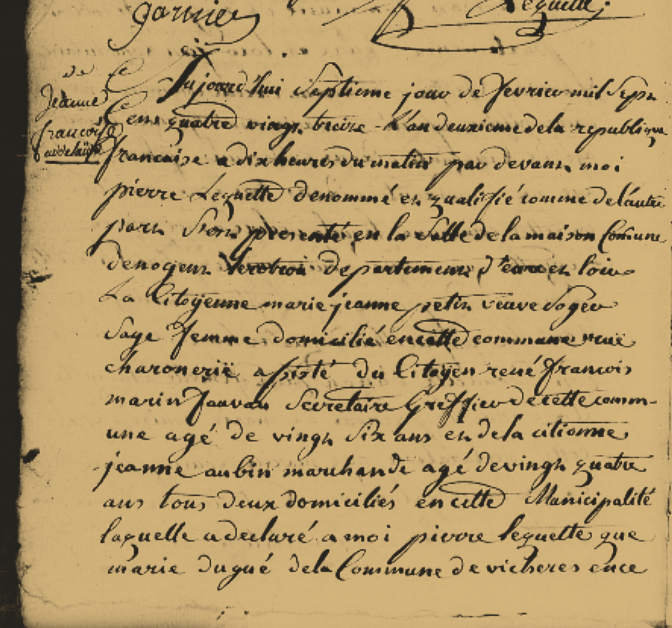 garnier Leguette
de ce
Jeanne
francoise
Aujourd'hui Septieme jour de fevrier mil Sept
Cens quatre vingt treize - L'an deuxieme dela republique
francaise a dix heures du matin par devant moi
pierre Leguette denommé en qualifié comme del'autre
part S'est presenté en la Salle de la maison Comune
denogent departement d'eure et loir
La Citoyenne marie jeanne petit veuve Doger
Sage femme domicilié en cette commune rue
charonerie assisté du Citoyen rené francois
marin Jauvau Secretaire Greffier de cette comm-
une agé de vingt Six ans et dela citienne
jeanne aubin marchande agé devingt quatre
ans tous deux domiciliés en cette Municipalité
laquelle a declaré a moi pierre leguette que
marie dugué dela Commune de vicheres ence